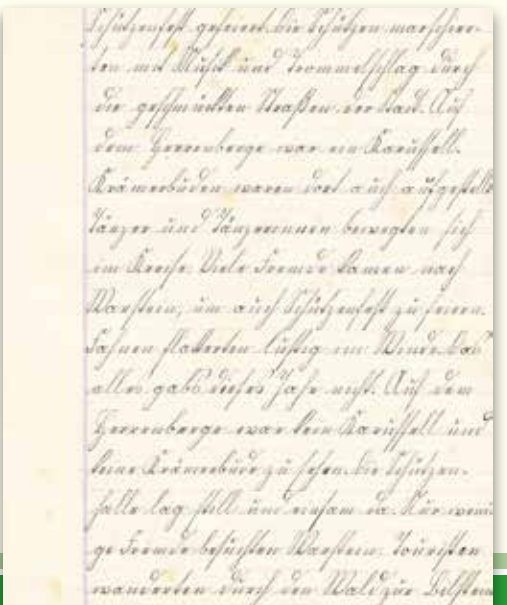 Schützenfest gefeiert. Die Schützen marschier-
ten mit Musik und Trommelschlag durch
die geschmückten Straßen der Stadt. Auf
dem Herrenberge war ein Karussell.
Krämerbuden waren dort auch aufgestellt
Tänzer und Tänzerinnen bewegten sich
im Kreise. Viele Fremde kamen nach
Warstein, um auch Schützenfest zu feiern.
Fahnen flatterten lustig im Winde. Das
alles gab's dieses Jahr nicht. Auf dem
Herrenberge war kein Karussell und
keine Krämerbude zu sehen. Die Schützen-
halle lag still und einsam da. Nur weni-
ge Fremde besuchten Warstein. Touristen
wanderten durch den Wald zur Bilstein